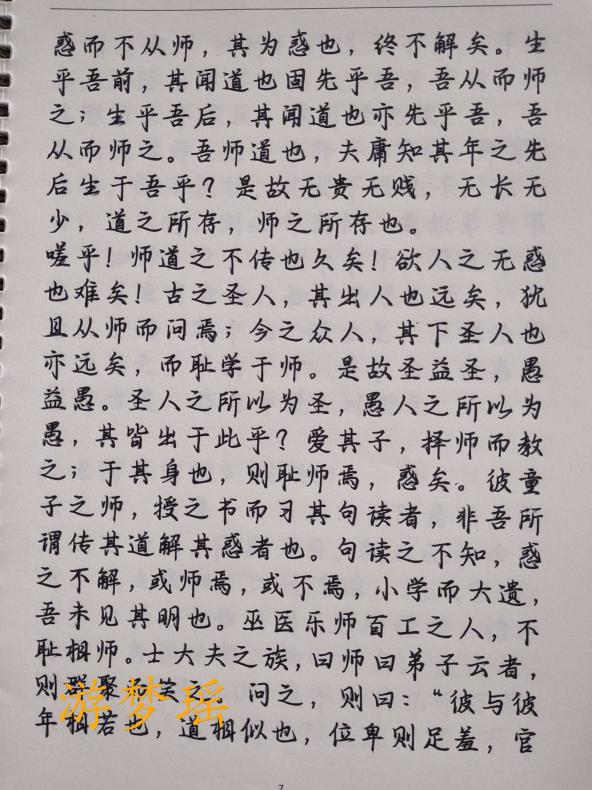 惑而不从师，其为惑也，终不解矣。生
乎吾前，其闻道也固先乎吾，吾从而师
之；生乎吾后，其闻道也亦先乎吾，吾
从而师之。吾师道也，夫庸知其年之先
后生于吾乎？是故无贵无贱，无长无
少，道之所存，师之所存也。
嗟乎！师道之不传也久矣！欲人之无惑
也难矣！古之圣人，其出人也远矣，犹
且从师而问焉；今之众人，其下圣人也
亦远矣，而耻学于师。是故圣益圣，愚
益愚。圣人之所以为圣，愚人之所以为
愚，其皆出于此乎？爱其子，择师而教
之；于其身也，则耻师焉，惑矣。彼童
子之师，授之书而习其句读者，非吾所
谓传其道解其惑者也。句读之不知，惑
之不解，或师焉，或不焉，小学而大遗，
吾未见其明也。巫医乐师百工之人，不
耻相师。士大夫之族，曰师曰弟子云者，
则群聚而笑之。问之，则曰：“彼与彼
年相若也，道相似也，位卑则足羞，官
游梦瑶
7